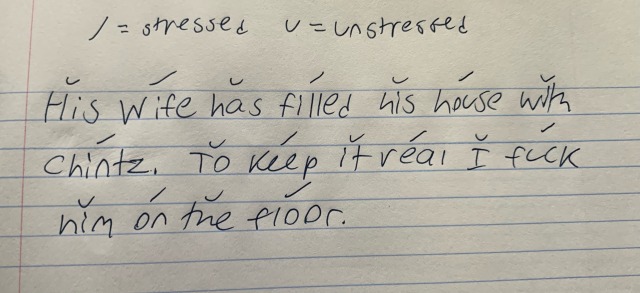 / = stressed ∪ = unstressed
His wife has filled his house with
chintz. To keep it real I fuck
him on the floor.